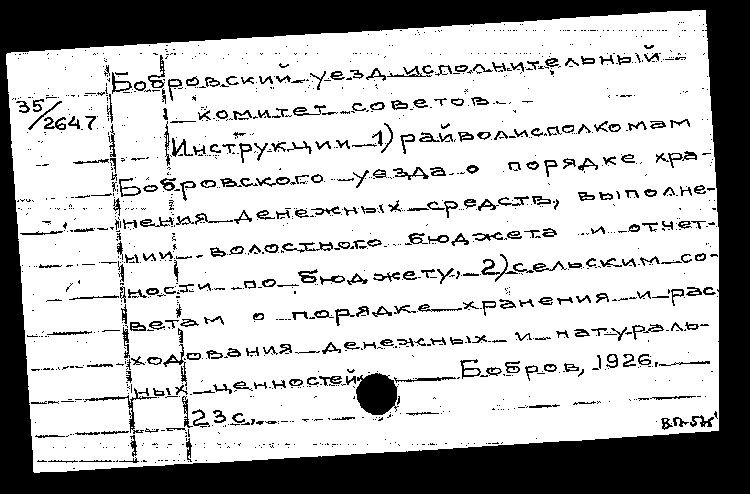 Бобровский уезд исполнительный
35/2647
комитет советов.
Инструкции 1) райволисполкомам
Бобровского уезда о порядке хра-
нения денежных средств, выполне-
нии волостного бюджета и отчет-
ности по бюджету, 2) сельским со-
ветам о порядке хранения и рас
ходования денежных и натураль-
ных ценностей Бобров, 1926.
23с.